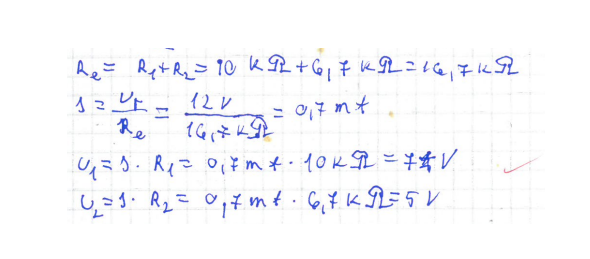 Re = R1+R2 = 10 kΩ + 6,7 kΩ = 16,7 kΩ
I = Ur/Re = 12 V/16,7 kΩ = 0,7 mA
U1 = I · R1 = 0,7 mA · 10 kΩ = 7 V
U2 = I · R2 = 0,7 mA · 6,7 kΩ = 5 V